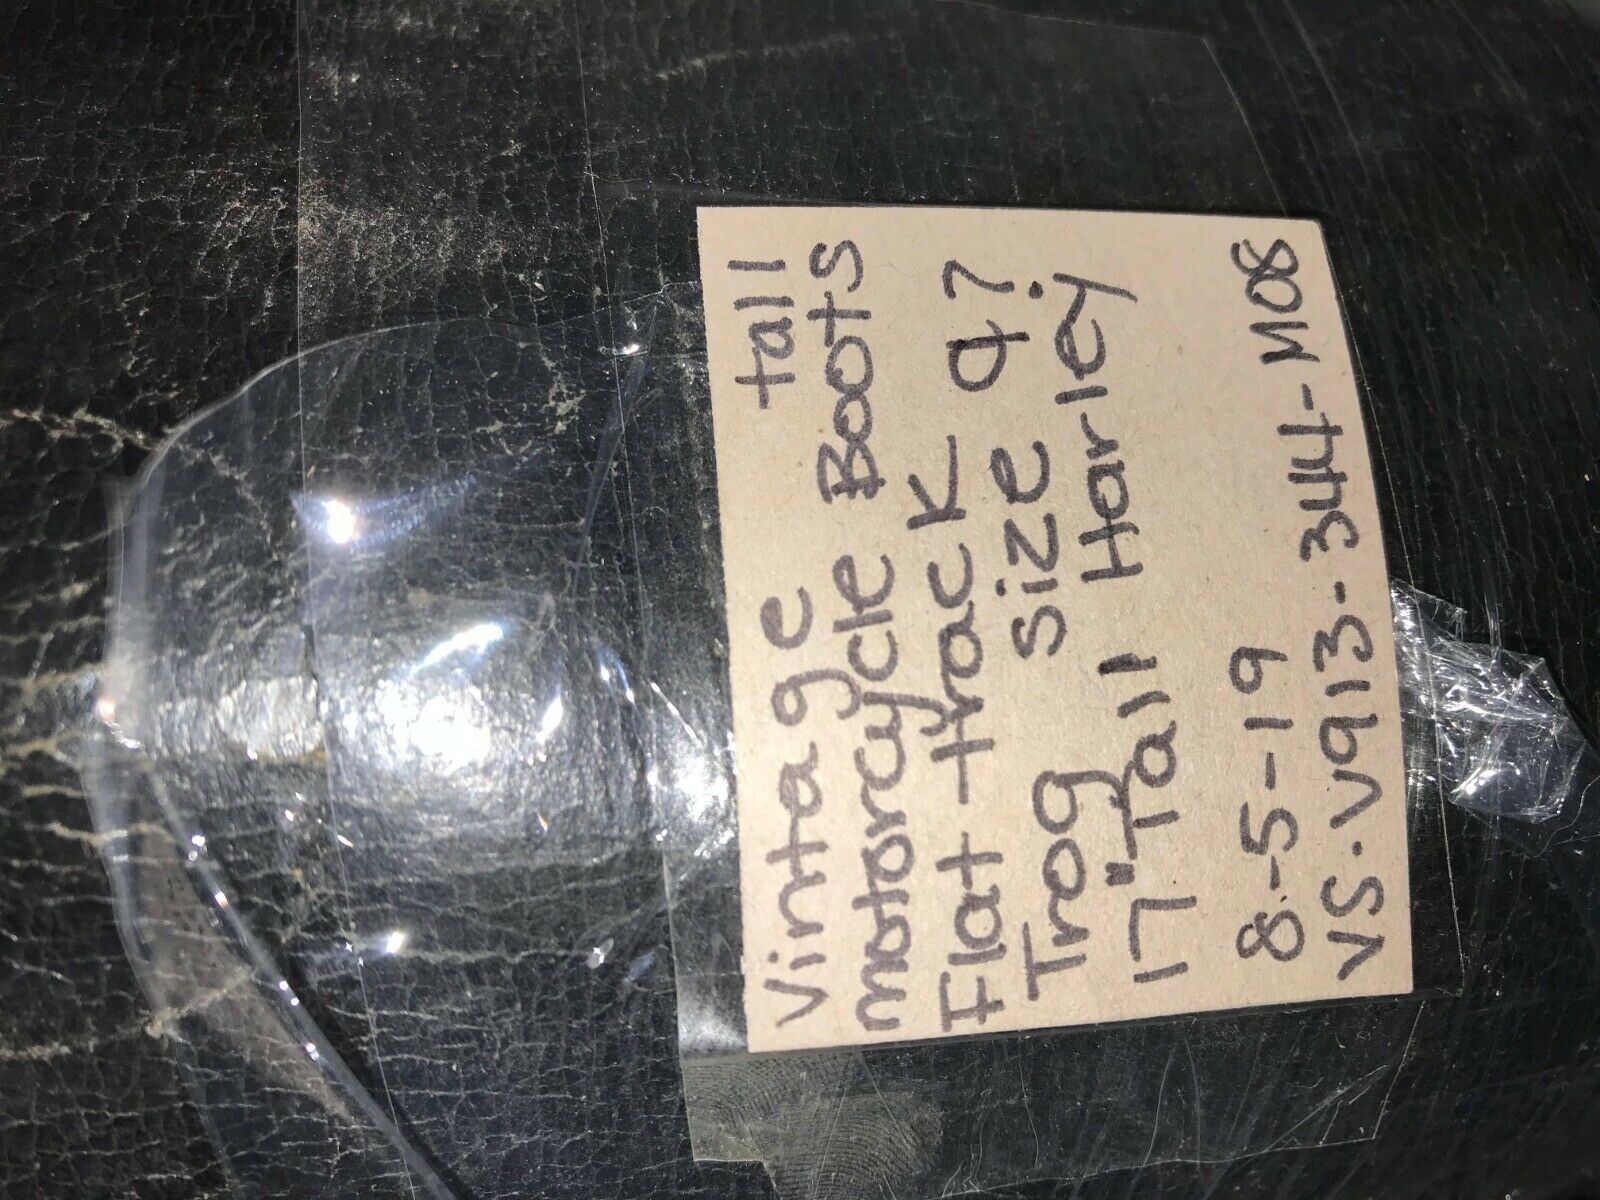 Vintage tall
motorcycle Boots
Flat track
Trog size 9?
17" Tall Harley
8-5-19
VS.V913-344-M08